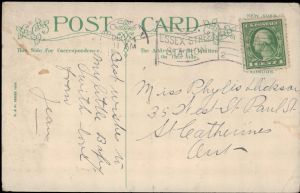 POST CARD
This Side for Correspondence.
The Address to be Written on This Side.
NEW YORK
ESSEX STREET
Best wishes to
my little Baby
with love
from
Jean
Miss Phyllis
35 West St Paul St
St Catherines
Ont